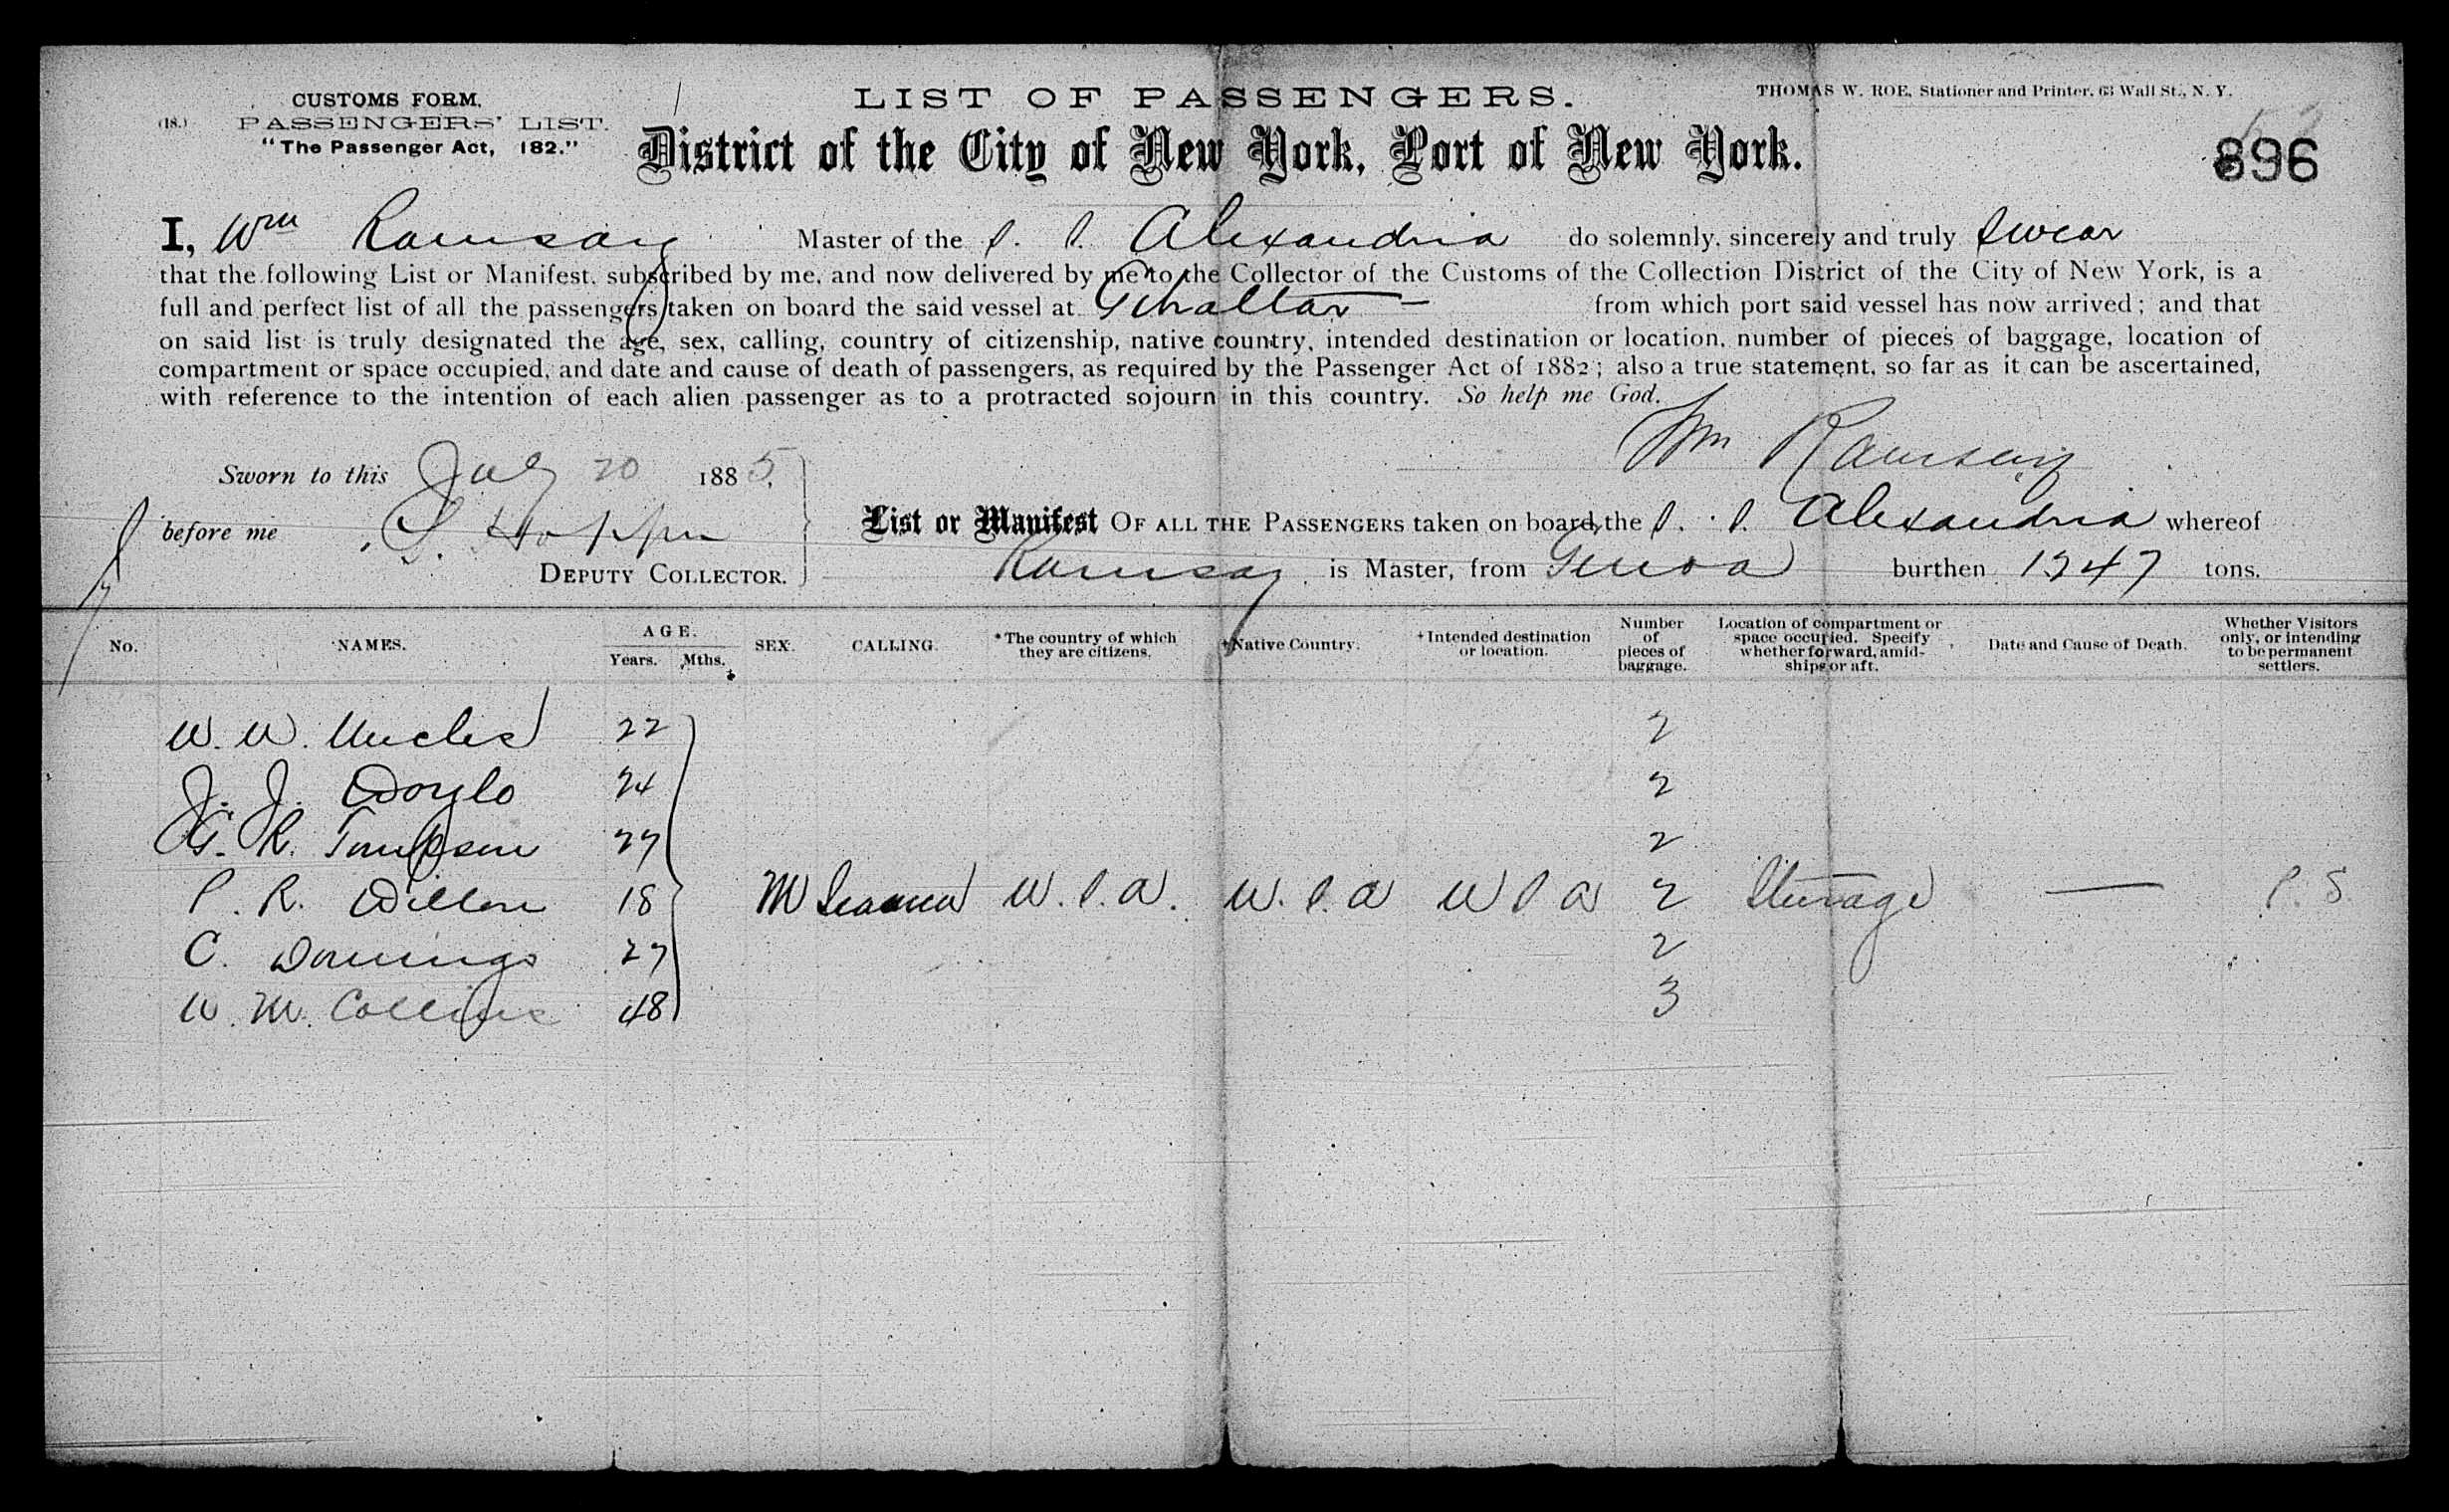 CUSTOMS FORM.
(18.) PASSENGERS' LIST.
"The Passenger Act, 182."
LIST OF PASSENGERS.
THOMAS W. ROE, Stationer and Printer, 63 Wall St., N. Y.
District of the City of New York, Port of New York.
896
I, Wm Ramsay Master of the S. S. Alexandria do solemnly, sincerely and truly swear
that the following List or Manifest, subscribed by me, and now delivered by me to the Collector of the Customs of the Collection District of the City of New York, is a
full and perfect list of all the passengers taken on board the said vessel at Gibraltar from which port said vessel has now arrived; and that
on said list is truly designated the age, sex, calling, country of citizenship, native country, intended destination or location, number of pieces of baggage, location of
compartment or space occupied, and date and cause of death of passengers, as required by the Passenger Act of 1882; also a true statement, so far as it can be ascertained,
with reference to the intention of each alien passenger as to a protracted sojourn in this country. So help me God.
Wm Ramsay
Sworn to this July 20 1885,
before me
DEPUTY COLLECTOR.
List or Manifest OF ALL THE PASSENGERS taken on board the S. S. Alexandria whereof
Ramsay is Master, from Genoa burthen 1347 tons.
No. NAMES. AGE. Years. Mths. SEX. CALLING. *The country of which they are citizens. †Native Country. †Intended destination or location. Number of pieces of baggage. Location of compartment or space occupied. Specify whether forward, amidships or aft. Date and Cause of Death. Whether Visitors only, or intending to be permanent settlers.
W. W. 22 2
J. J. Doyle 24 2
G. R. Tompson 27 2
P. R. Dillon 18 M Seamen U.S.A. U.S.A U S A 2 Steerage — P. S.
C. 27 2
W. M. Collins 48 3